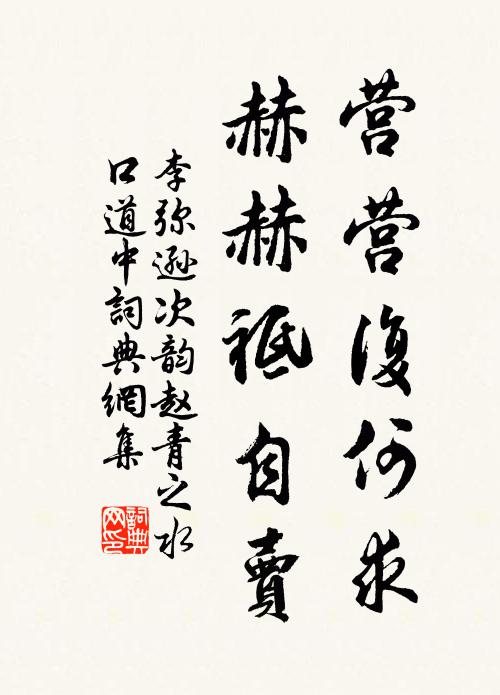 营营復何求
赫赫祗自賣
李弥遜次韵赵青之水
口道中詞典網集
詞典
网印